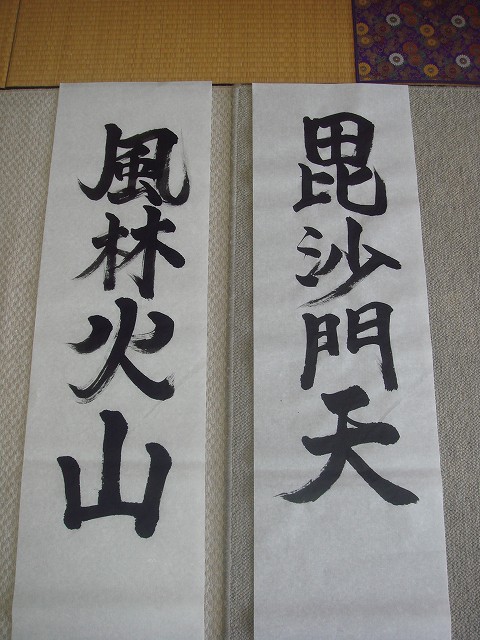 毘沙門天
風林火山